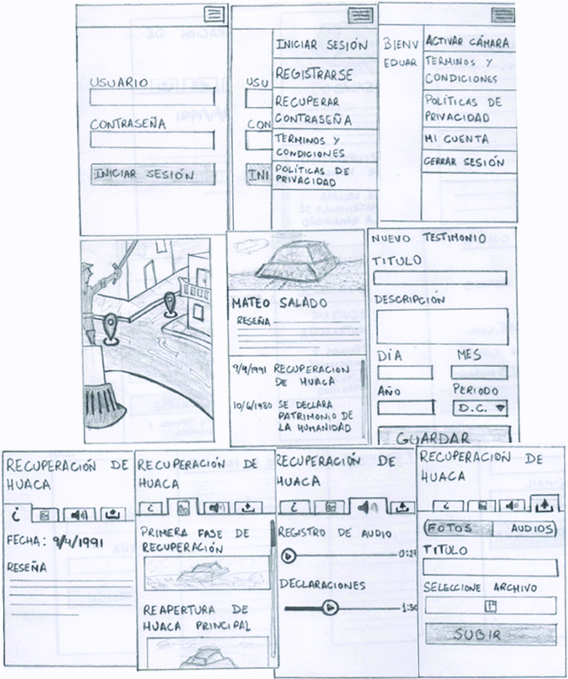 USUARIO
CONTRASEÑA
INICIAR SESIÓN
USU
CON
INI
INICIAR SESIÓN
REGISTRARSE
RECUPERAR
CONTRASEÑA
TERMINOS Y
CONDICIONES
POLÍTICAS DE
PRIVACIDAD
BIENV
EDUAR
ACTIVAR CÁMARA
TERMINOS Y
CONDICIONES
POLÍTICAS DE
PRIVACIDAD
MI CUENTA
CERRAR SESIÓN
MATEO SALADO
RESEÑA
9/4/1991 RECUPERACION
DE HUACA
10/6/1980 SE DECLARA
PATRIMONIO DE
LA HUMANIDAD
NUEVO TESTIMONIO
TITULO
DESCRIPCIÓN
DÍA MES
AÑO PERIODO
D.C.
GUARDAR
RECUPERACIÓN DE
HUACA
¿
FECHA: 9/4/1991
RESEÑA
RECUPERACIÓN DE
HUACA
¿
PRIMERA FASE DE
RECUPERACIÓN
REAPERTURA DE
HUACA PRINCIPAL
RECUPERACIÓN DE
HUACA
¿
REGISTRO DE AUDIO
0:27
DECLARACIONES
1:30
RECUPERACIÓN DE
HUACA
¿
FOTOS AUDIOS
TITULO
SELECCIONE ARCHIVO
SUBIR